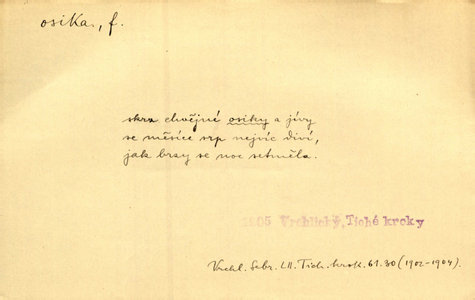 osika, f.
skrz chvějné osiky a jívy
se měsíce srp nejvíc diví,
jak brzy se noc setměla.
1905 Vrchlický, Tiché kroky
Vrchl. Sebr. LII. Tich. krok. 61.30 (1902-1904).